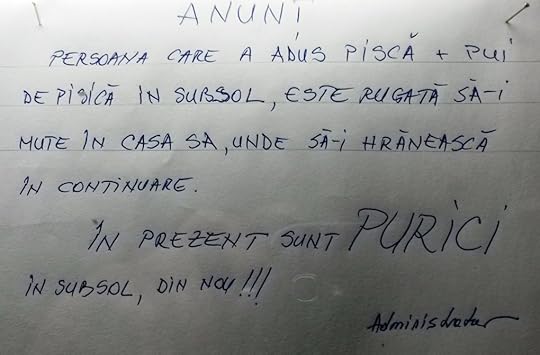 ANUNȚ
PERSOANA CARE A ADUS PISCĂ + PUI
DE PISICĂ IN SUBSOL, ESTE RUGATĂ SĂ-I
MUTE ÎN CASA SA, UNDE SĂ-I HRĂNEASCĂ
ÎN CONTINUARE.
ÎN PREZENT SUNT PURICI
IN SUBSOL, DIN NOU!!!
Administrator